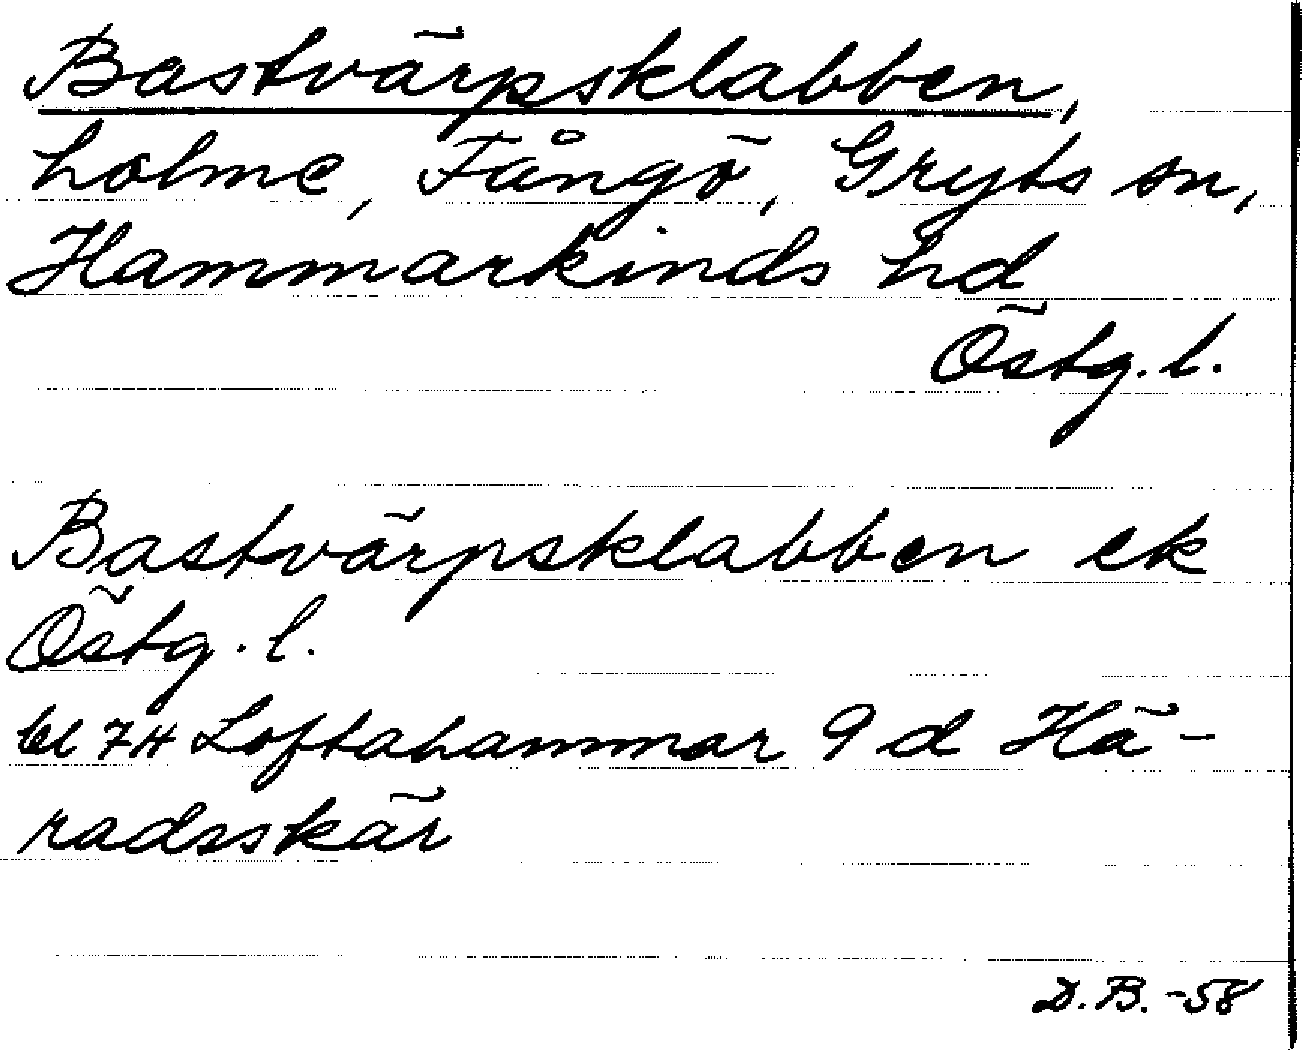 Bastvärpsklabben,
holme, Fångö, Gryts sn,
Hammarkinds hd
Östg. l.
Bastvärpsklabben ek
Östg. l.
bl 7H Loftahammar 9 d Hä-
radsskär
D. B. -58